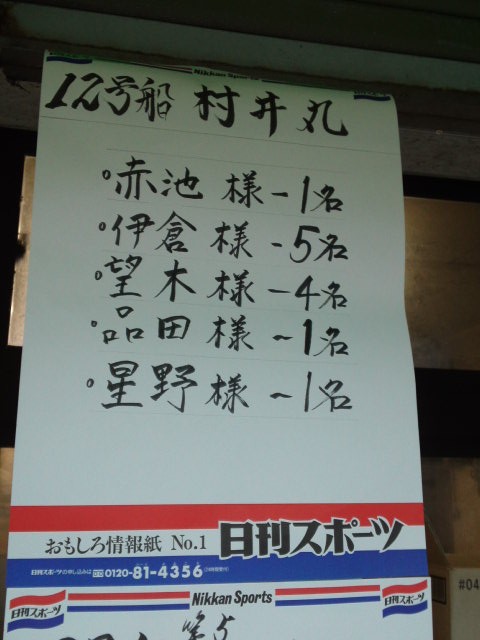 Nikkan Sports
12号船 村井丸
°赤池 様-1名
°伊倉 様-5名
°望木 様-4名
°品田 様-1名
°星野 様-1名
おもしろ情報紙 No.1 日刊スポーツ
日刊スポーツの申し込みは 0120-81-4356
日刊スポーツ Nikkan Sports 日刊スポーツ
第5
#04